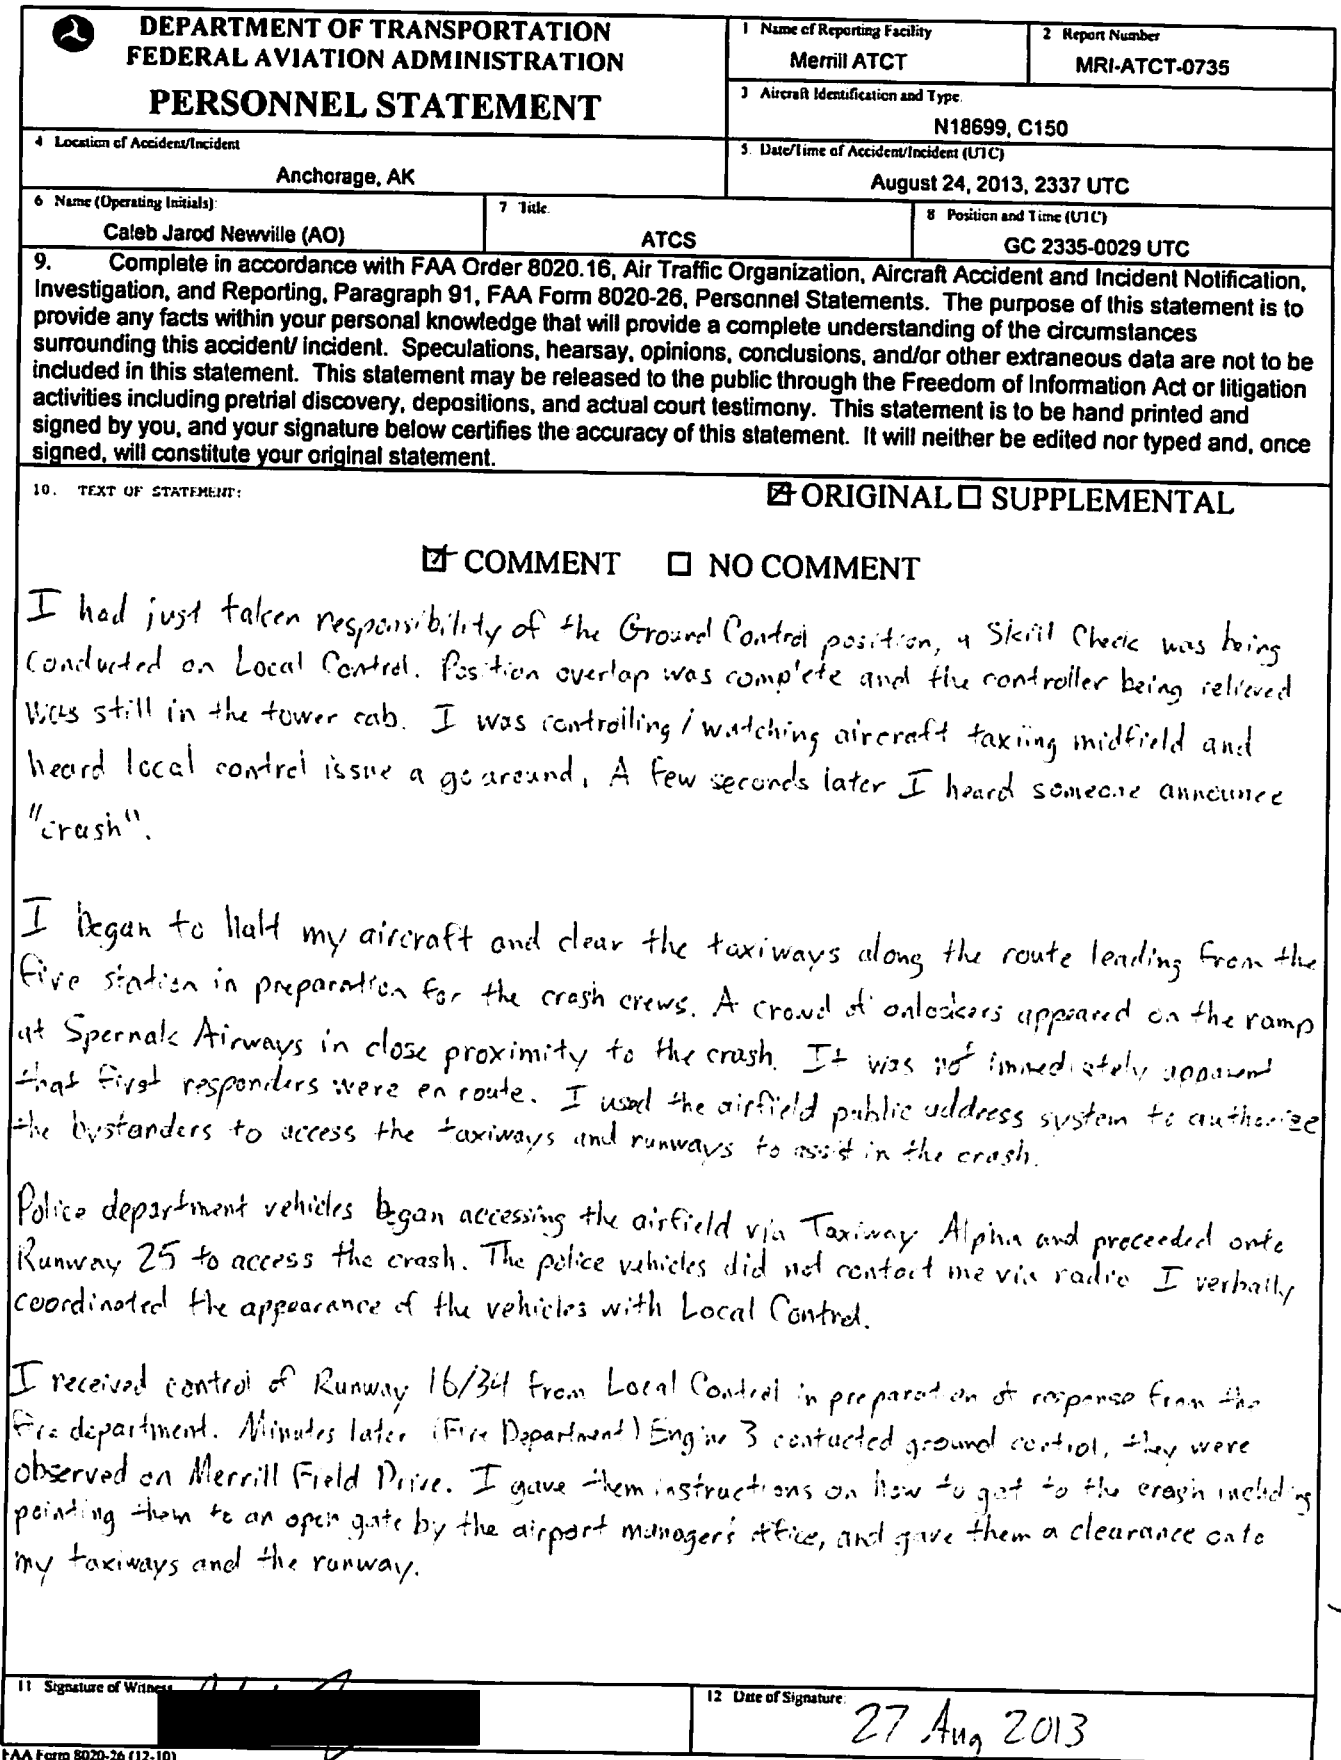 DEPARTMENT OF TRANSPORTATION
FEDERAL AVIATION ADMINISTRATION
PERSONNEL STATEMENT
1 Name of Reporting Facility
Merrill ATCT
2 Report Number
MRI-ATCT-0735
3 Aircraft Identification and Type.
N18699, C150
4 Location of Accident/Incident
Anchorage, AK
5. Date/Time of Accident/Incident (UTC)
August 24, 2013, 2337 UTC
6 Name (Operating Initials):
Caleb Jarod Newville (AO)
7 Title.
ATCS
8 Position and Time (UTC)
GC 2335-0029 UTC
9. Complete in accordance with FAA Order 8020.16, Air Traffic Organization, Aircraft Accident and Incident Notification,
Investigation, and Reporting, Paragraph 91, FAA Form 8020-26, Personnel Statements. The purpose of this statement is to
provide any facts within your personal knowledge that will provide a complete understanding of the circumstances
surrounding this accident/ incident. Speculations, hearsay, opinions, conclusions, and/or other extraneous data are not to be
included in this statement. This statement may be released to the public through the Freedom of Information Act or litigation
activities including pretrial discovery, depositions, and actual court testimony. This statement is to be hand printed and
signed by you, and your signature below certifies the accuracy of this statement. It will neither be edited nor typed and, once
signed, will constitute your original statement.
10. TEXT OF STATEMENT:
☒ ORIGINAL ☐ SUPPLEMENTAL
☒ COMMENT ☐ NO COMMENT
I had just taken responsibility of the Ground Control position, a Skill Check was being
conducted on Local Control. Position overlap was complete and the controller being relieved
was still in the tower cab. I was controlling/watching aircraft taxiing midfield and
heard local control issue a go around. A few seconds later I heard someone announce
"crash".
I began to halt my aircraft and clear the taxiways along the route leading from the
fire station in preparation for the crash crews. A crowd of onlookers appeared on the ramp
at Spernak Airways in close proximity to the crash. It was not immediately apparent
that first responders were en route. I used the airfield public address system to authorize
the bystanders to access the taxiways and runways to assist in the crash.
Police department vehicles began accessing the airfield via Taxiway Alpha and proceeded onto
Runway 25 to access the crash. The police vehicles did not contact me via radio I verbally
coordinated the appearance of the vehicles with Local Control.
I received control of Runway 16/34 from Local Control in preparation of response from the
fire department. Minutes later (Fire Department) Engine 3 contacted ground control, they were
observed on Merrill Field Drive. I gave them instructions on how to get to the crash including
pointing them to an open gate by the airport manager's office, and gave them a clearance onto
my taxiways and the runway.
11 Signature of Witness
12 Date of Signature:
27 Aug 2013
FAA Form 8020-26 (12-10)